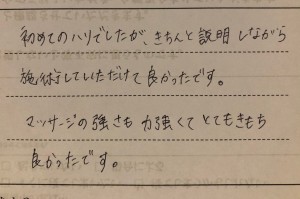 初めてのハリでしたが、きちんと説明しながら
施術していただけて良かったです。
マッサージの強さも力強くてとてもきもち
良かったです。